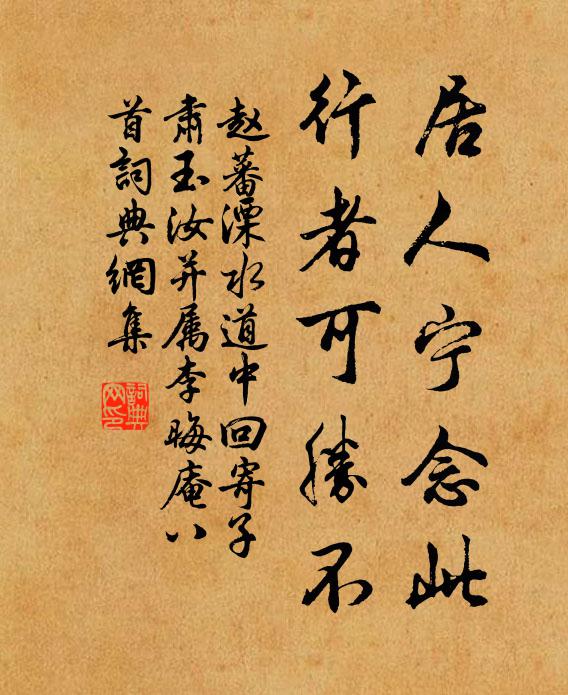 居人宁念此
行者可勝不
赵蕃溧水道中回寄子
肃玉汝并属李晦庵八
首詞典網集
詞典
网印